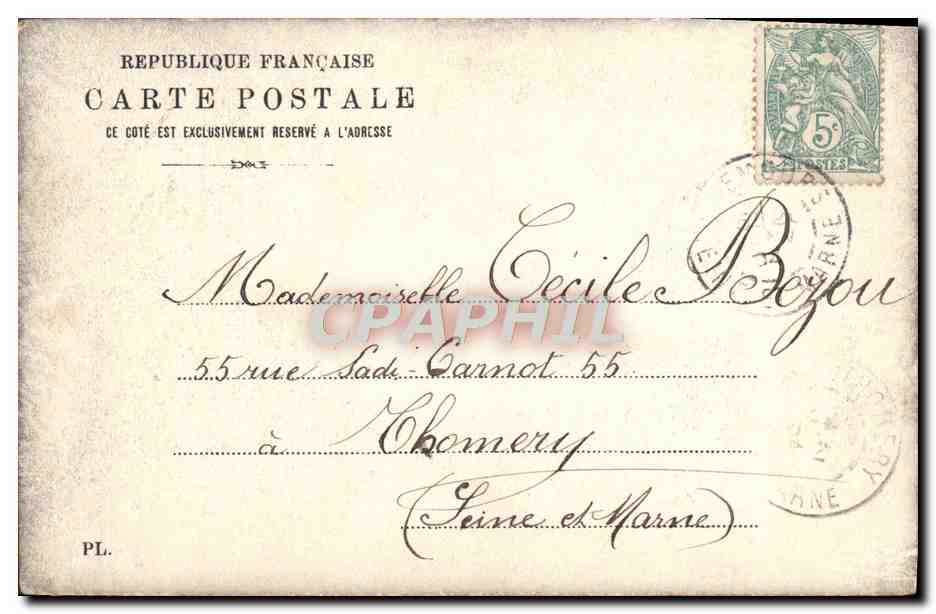 REPUBLIQUE FRANÇAISE
CARTE POSTALE
CE COTÉ EST EXCLUSIVEMENT RESERVÉ A L'ADRESSE
5c
POSTES
MARNE
Mademoiselle Cécile Bezou
CPAPHIL
55 rue Sadi-Carnot 55
à Thomery
(Seine et Marne)
ARNE
PL.